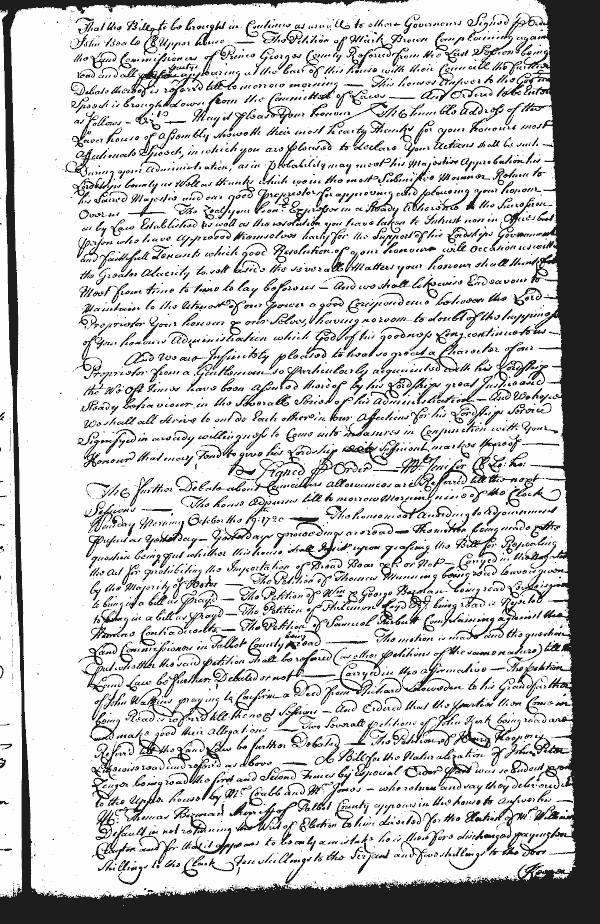 That the Bill to be brought in Continue as usuall to other Governours Signed p Order
John Beale Cl Upper house — The Petition of Mark Brown Complaining against
the Land Commissioners of Prince Georges County Refered from the Last Sessions being
read and all partys appearing at the bar of this house with their Councill the further
Debate thereof is refered till to morrow morning — This houses Answer to the Gov
Speech is brought down from the Committee of Laws — And Ordered to be Entred
as follows — Viz — May it please Your honour / The humble address of the
Lower house of Assembly sheweth their most hearty thanks for your honours most
Affectionate Speech, in which you are pleased to declare Your Actions shall be such
During your Administration, as in probability may meet his Majestys Approbation his
Lordships County as Well as thanks which we in the most Submissive Manner Return to
his Sacred Majestie and our good Proprietor for approving and placing your honour
Over us — The Zeal your hon Express in a Steady Adherence to the Succession
as by Law Established as well as the resolution you have taken to Intrust none in Offices but
person who have Approved themselves hearty for the Support of his Lordships Government
and faithfull Tenants which good Resolution of your honours will Occasion us with
the Greater Alacrity to sett aside the severall Matters your honour shall think fit
Most from time to time to lay before us — And we shall likewise Endeavour to
Maintain to the Utmost of our power a good Corespondence between the Lord
Proprietor Your honour & our Selves, having no room to doubt of the happiness
of Your honours Administration which God of his goodness Long continue to us
And we are Infinitely pleased to hear so great a Character of our
Proprietor from a Gentleman so Particularly acquainted with his Lordship
the We Oft times have been Assured thereof by his Lordships great Justice and
Steady behaviour in the Severalle Series of his Administration — And We hope
We shall all Strive to out do Each other in our Affections for his Lordships Service
Signifyed in a ready willingness to Come into measures in Conjunction with Your
Honour that may tend to give his Lordship Sufficient marks thereof
Signed p Order — Mr Jenifer Cl Lo. ho.
The further Debate about Councillors allowances are Refered till the next
Sessions — The house adjourns till to morrow Morning nine of the Clock
Morning October the 19 1720 — The house meet According to Adjournment
Present as Yesterday — Yesterdays proceedings are read — the motion being made & the
question being put whether this house shall Insist upon passing the Bill for Repealing
the Act for prohibiting the Importation of Bread Beer &c or Not — Carryed in the
by the Majority of Votes — The Petition of Thomas Manning being read leave is given
to bring in a bill as prayd — The Petition of Wm & George being read
to bring in a bill as prayd — The Petition of Philemon Lloyd Esq being read is Rejected
— The Petition of Samuel Complaining against the
Land Commissioners in Talbot County being read — The motion is made and the question
put whether the said petition shall be refered (as other petitions of the same nature) till the
Land Law be further Debated or not — Carryed in the affirmative — The petition
of John Watkins praying to Confirm a Deed from Richard Snowden to his Grandfather
being Read is refered till the next Sessions — And Ordered that the parties then Come in
and make good their Allegations — Two Severall petitions of John York being read are
Refered till the Land Law be further Debated — The Petition of Henry Hooper is
Likewise read and refered as above — A Bill for the Naturalization of John Peter
Zenger being read the first and Second times by Special Order Past was so Endorst & sent
to the Upper house by Mr Crabb and Mr Jones — who return and say they delivered it
Mr Thomas Bozman Sheriff of Talbot County appears in the house to Answer his
Default in not returning the Writ of Election to him directed for the Election of Mr William
Clayton and for that it appears to be only a mistake he is therefore discharged paying ten
Shillings to the Clerk Ten shillings to the Serjeant and five shillings to the Door
Keeper